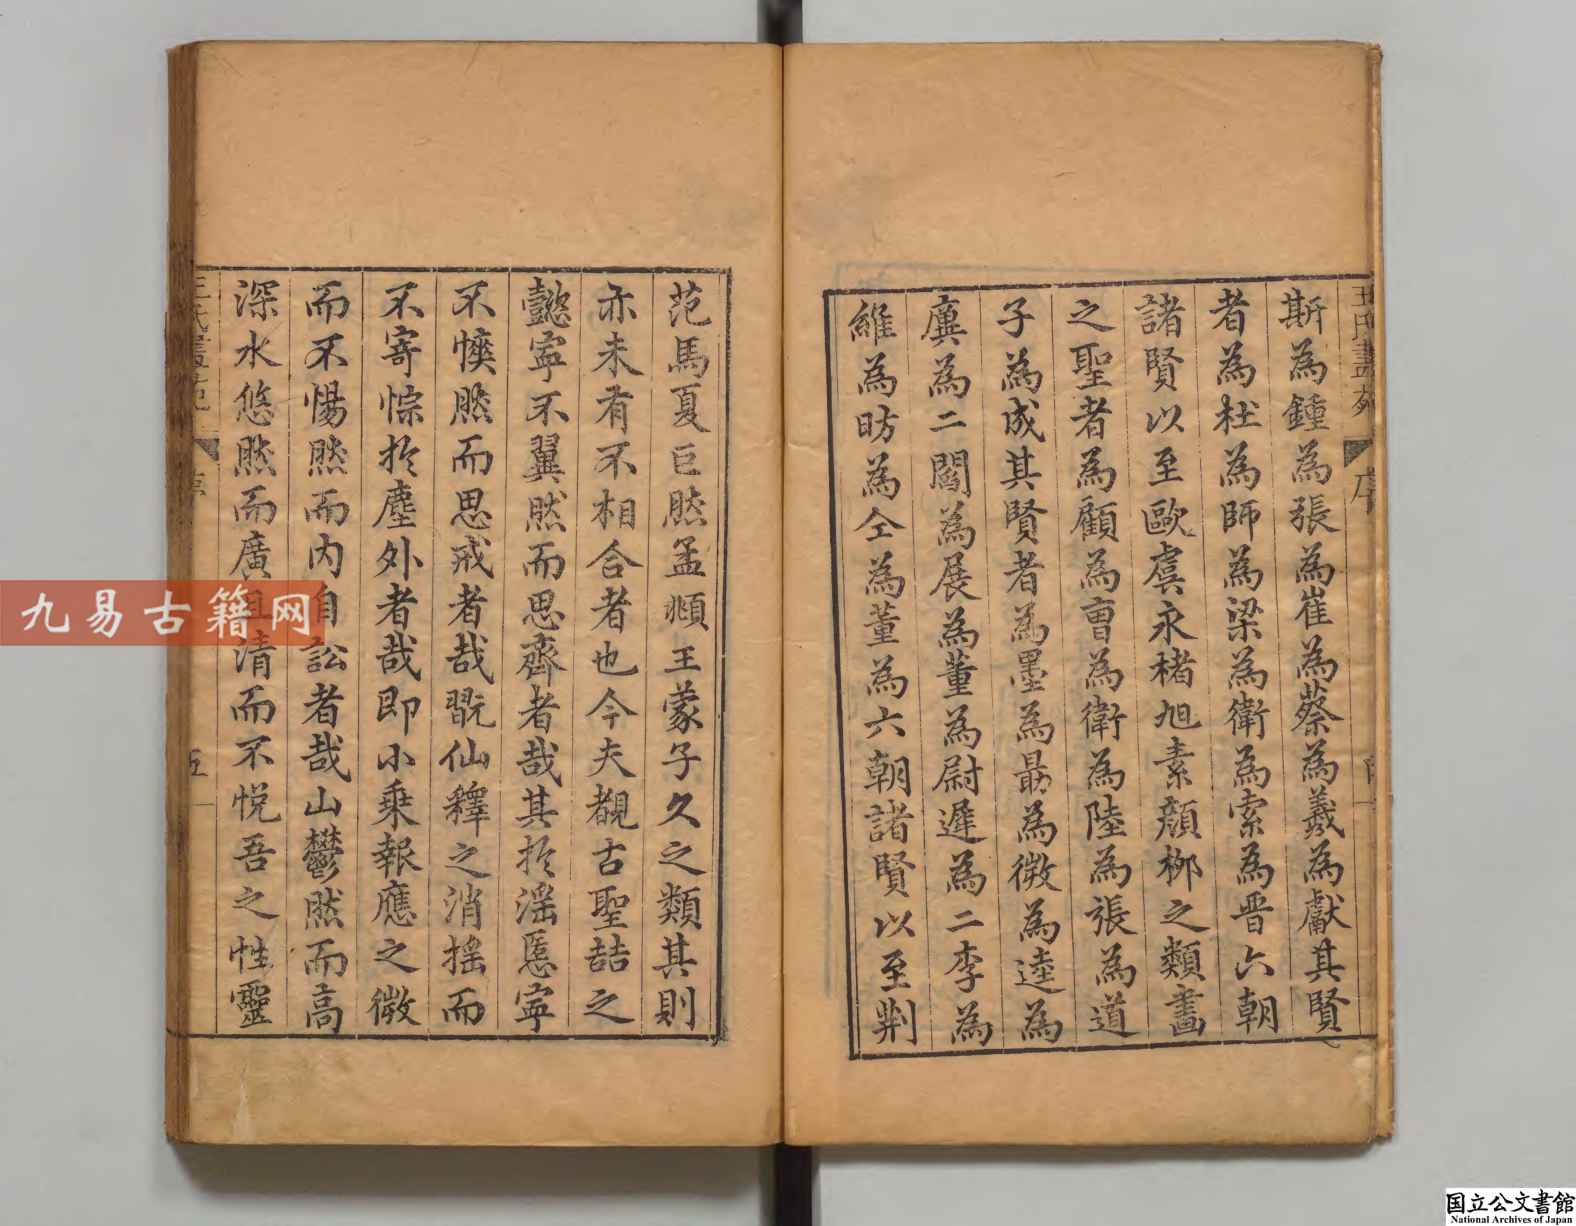 王氏畫苑 序
斯為鍾為張為崔為蔡為羲為獻其賢
者為杜為師為梁為衛為索為晋六朝
諸賢以至歐虞永褚旭素顏柳之類畫
之聖者為顧為曹為衛為陸為張為道
子為成其賢者為墨為勗為微為逵為
廙為二閻為展為董為尉遲為二李為
維為昉為仝為董為六朝諸賢以至荆
范馬夏巨然孟頫王蒙子久之類其則
亦未有不相合者也今夫覩古聖喆之
懿寧不翼然而思齊者哉其扵滛慝寧
不懊然而思戒者哉翫仙釋之消搖而
不寄悰扵塵外者哉即小乗報應之微
而不惕然而内自訟者哉山鬱然而高
深水悠然而廣且清而不悅吾之性靈
五
九易古籍网
国立公文書館
National Archives of Japan